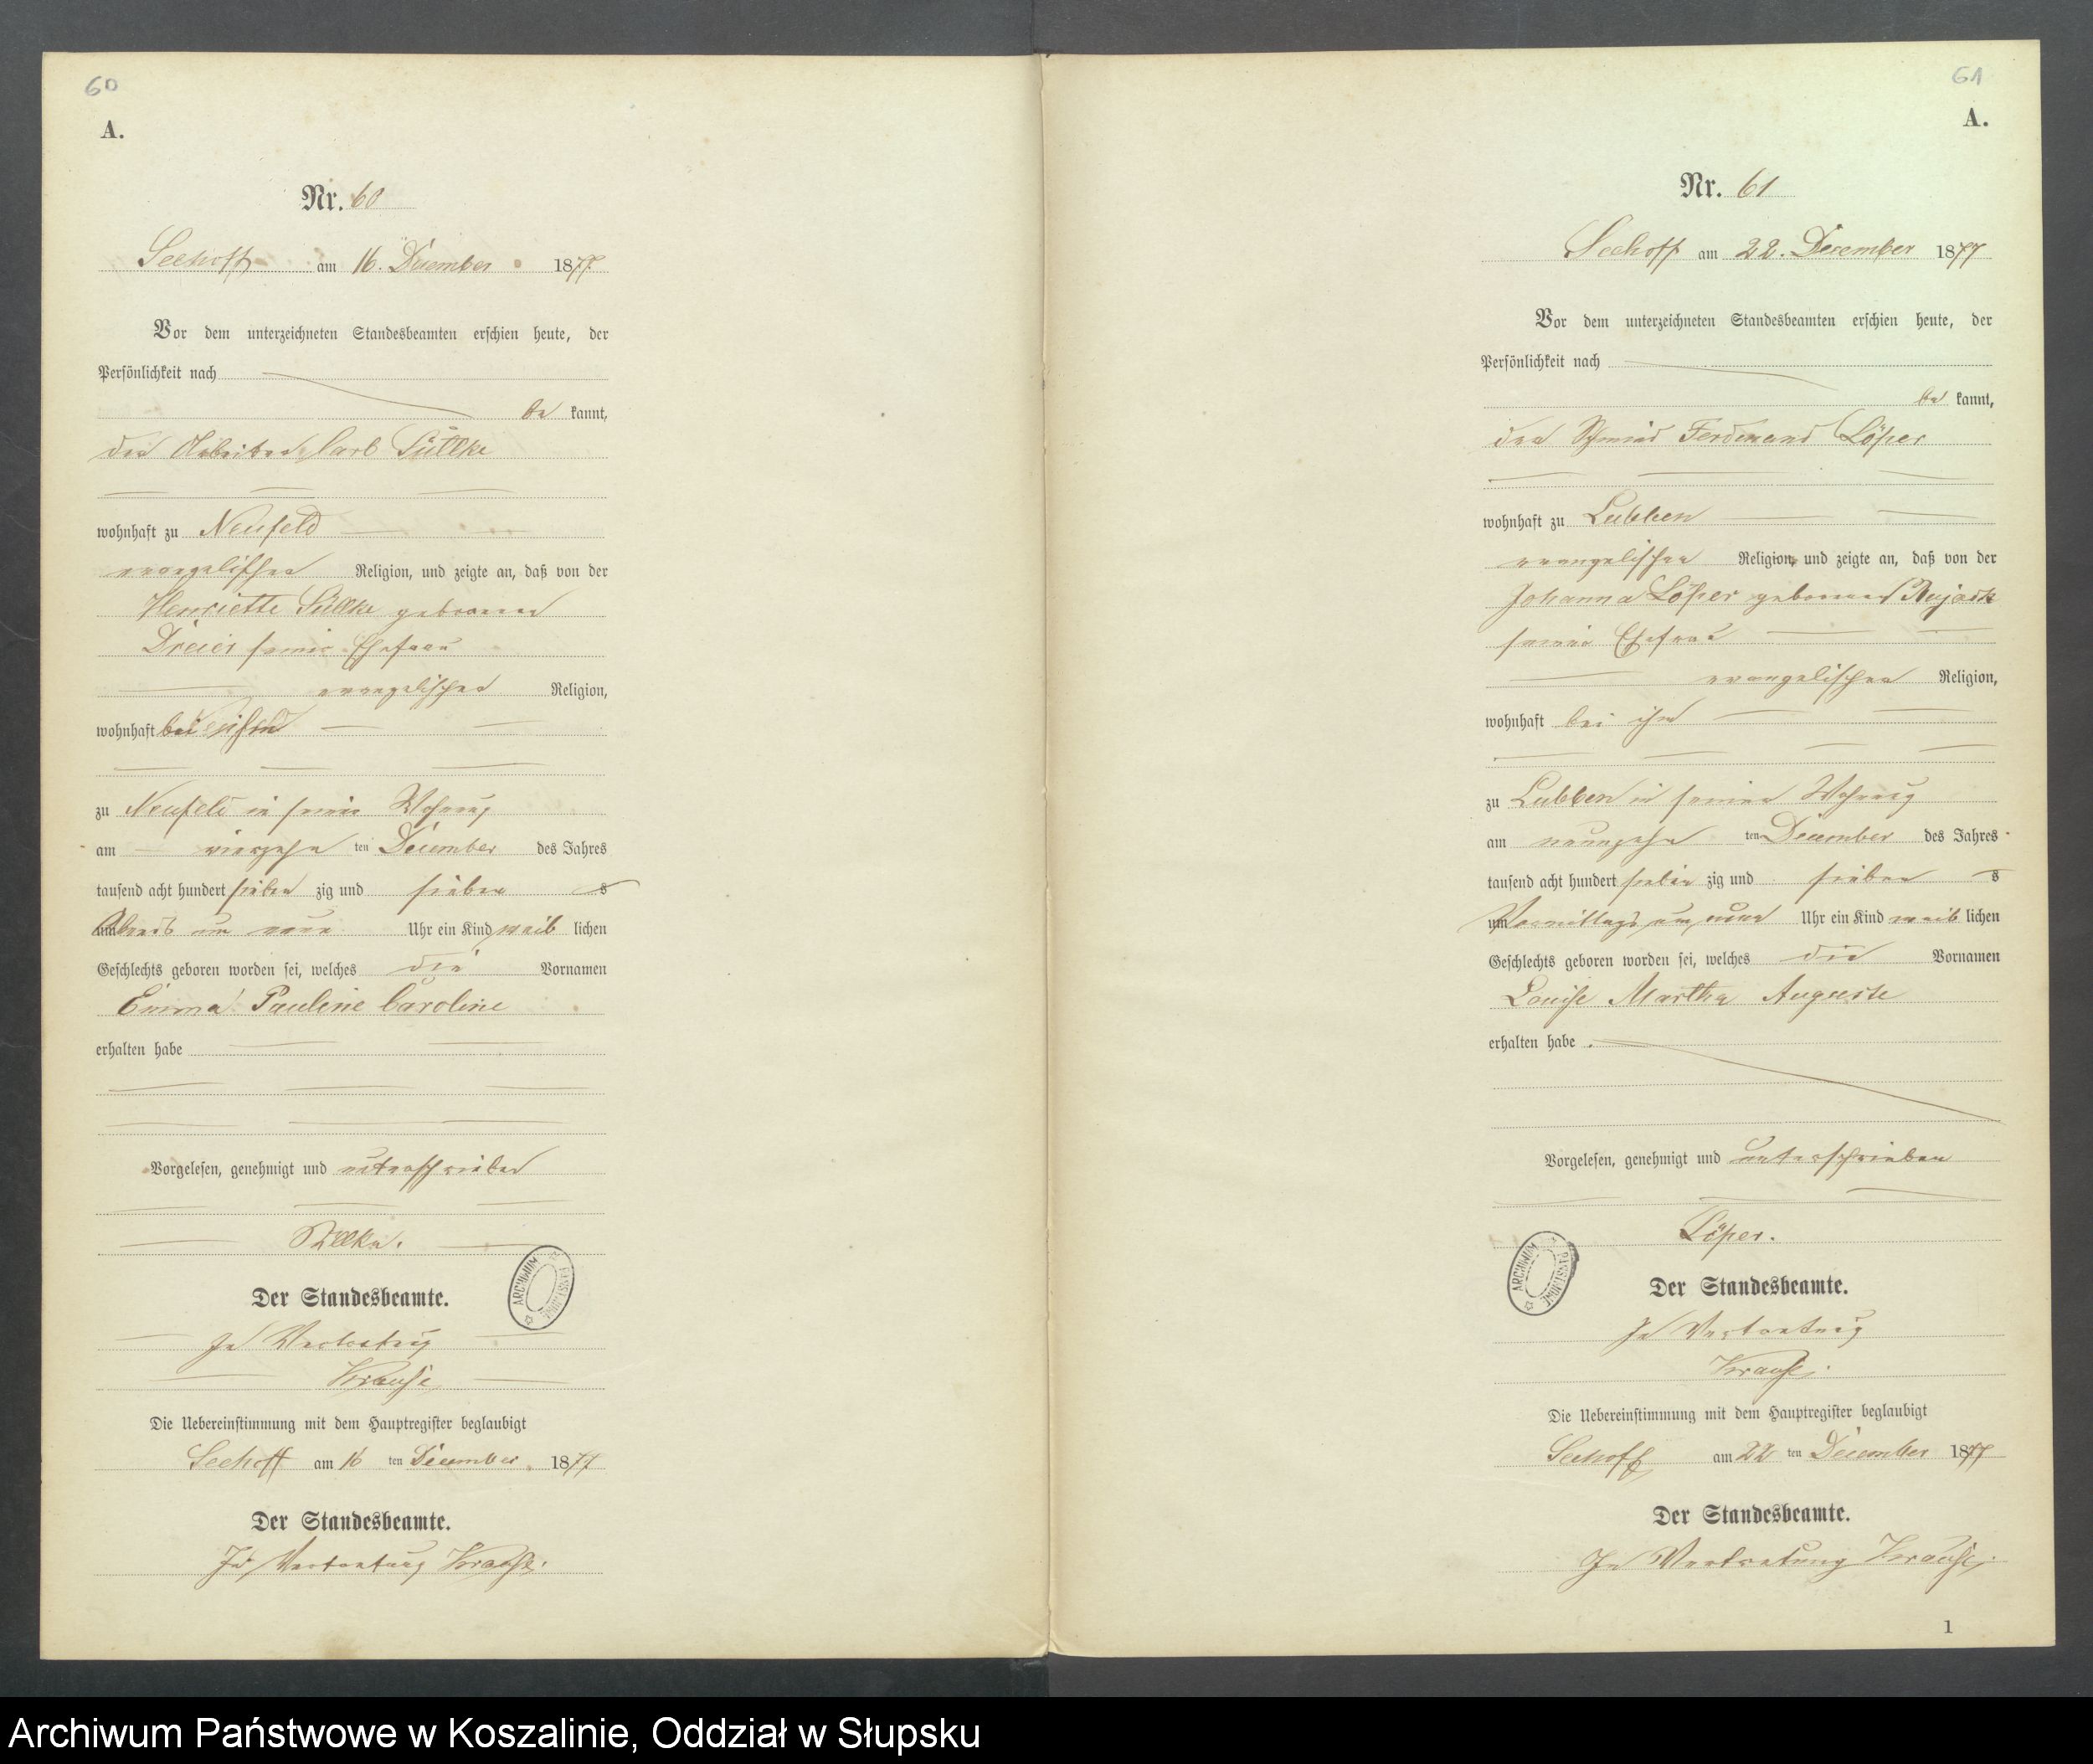 60
A.
Nr. 60
Seehoff am 16. December 1877.
Vor dem unterzeichneten Standesbeamten erschien heute, der
Persönlichkeit nach
be kannt,
der Arbeiter Carl
wohnhaft zu Neufeld
evangelischer Religion, und zeigte an, daß von der
Henriette geborenen
Dreier seiner Ehefrau
evangelischer Religion,
wohnhaft bei
zu Neufeld in seiner Wohnung
am vierzehn ten December des Jahres
tausend acht hundert sieben zig und sieben s
Abends um neun Uhr ein Kind weib lichen
Geschlechts geboren worden sei, welches die Vornamen
Emma Pauline Caroline
erhalten habe
Vorgelesen, genehmigt und unterschrieben
Der Standesbeamte.
In Vertretung
Krause
Die Uebereinstimmung mit dem Hauptregister beglaubigt
Seehoff am 16 ten December 1877
Der Standesbeamte.
In Vertretung Krause.
ARCHIWUM PAŃSTWOWE
61
A.
Nr. 61
Seehoff am 22. December 1877
Vor dem unterzeichneten Standesbeamten erschien heute, der
Persönlichkeit nach
be kannt,
der Schmied Ferdinand Löper
wohnhaft zu Lubben
evangelischer Religion, und zeigte an, daß von der
Johanna Löper geborenen
seiner Ehefrau
evangelischer Religion,
wohnhaft bei ihm
zu Lubben in seiner Wohnung
am neunzehn ten December des Jahres
tausend acht hundert sieben zig und sieben s
um Vormittags um neun Uhr ein Kind weib lichen
Geschlechts geboren worden sei, welches die Vornamen
Louise Martha Auguste
erhalten habe.
Vorgelesen, genehmigt und unterschrieben
Löper.
ARCHIWUM PAŃSTWOWE
Der Standesbeamte.
In Vertretung
Krause.
Die Uebereinstimmung mit dem Hauptregister beglaubigt
Seehoff am 22 ten December 1877
Der Standesbeamte.
In Vertretung Krause.
1
Archiwum Państwowe w Koszalinie, Oddział w Słupsku